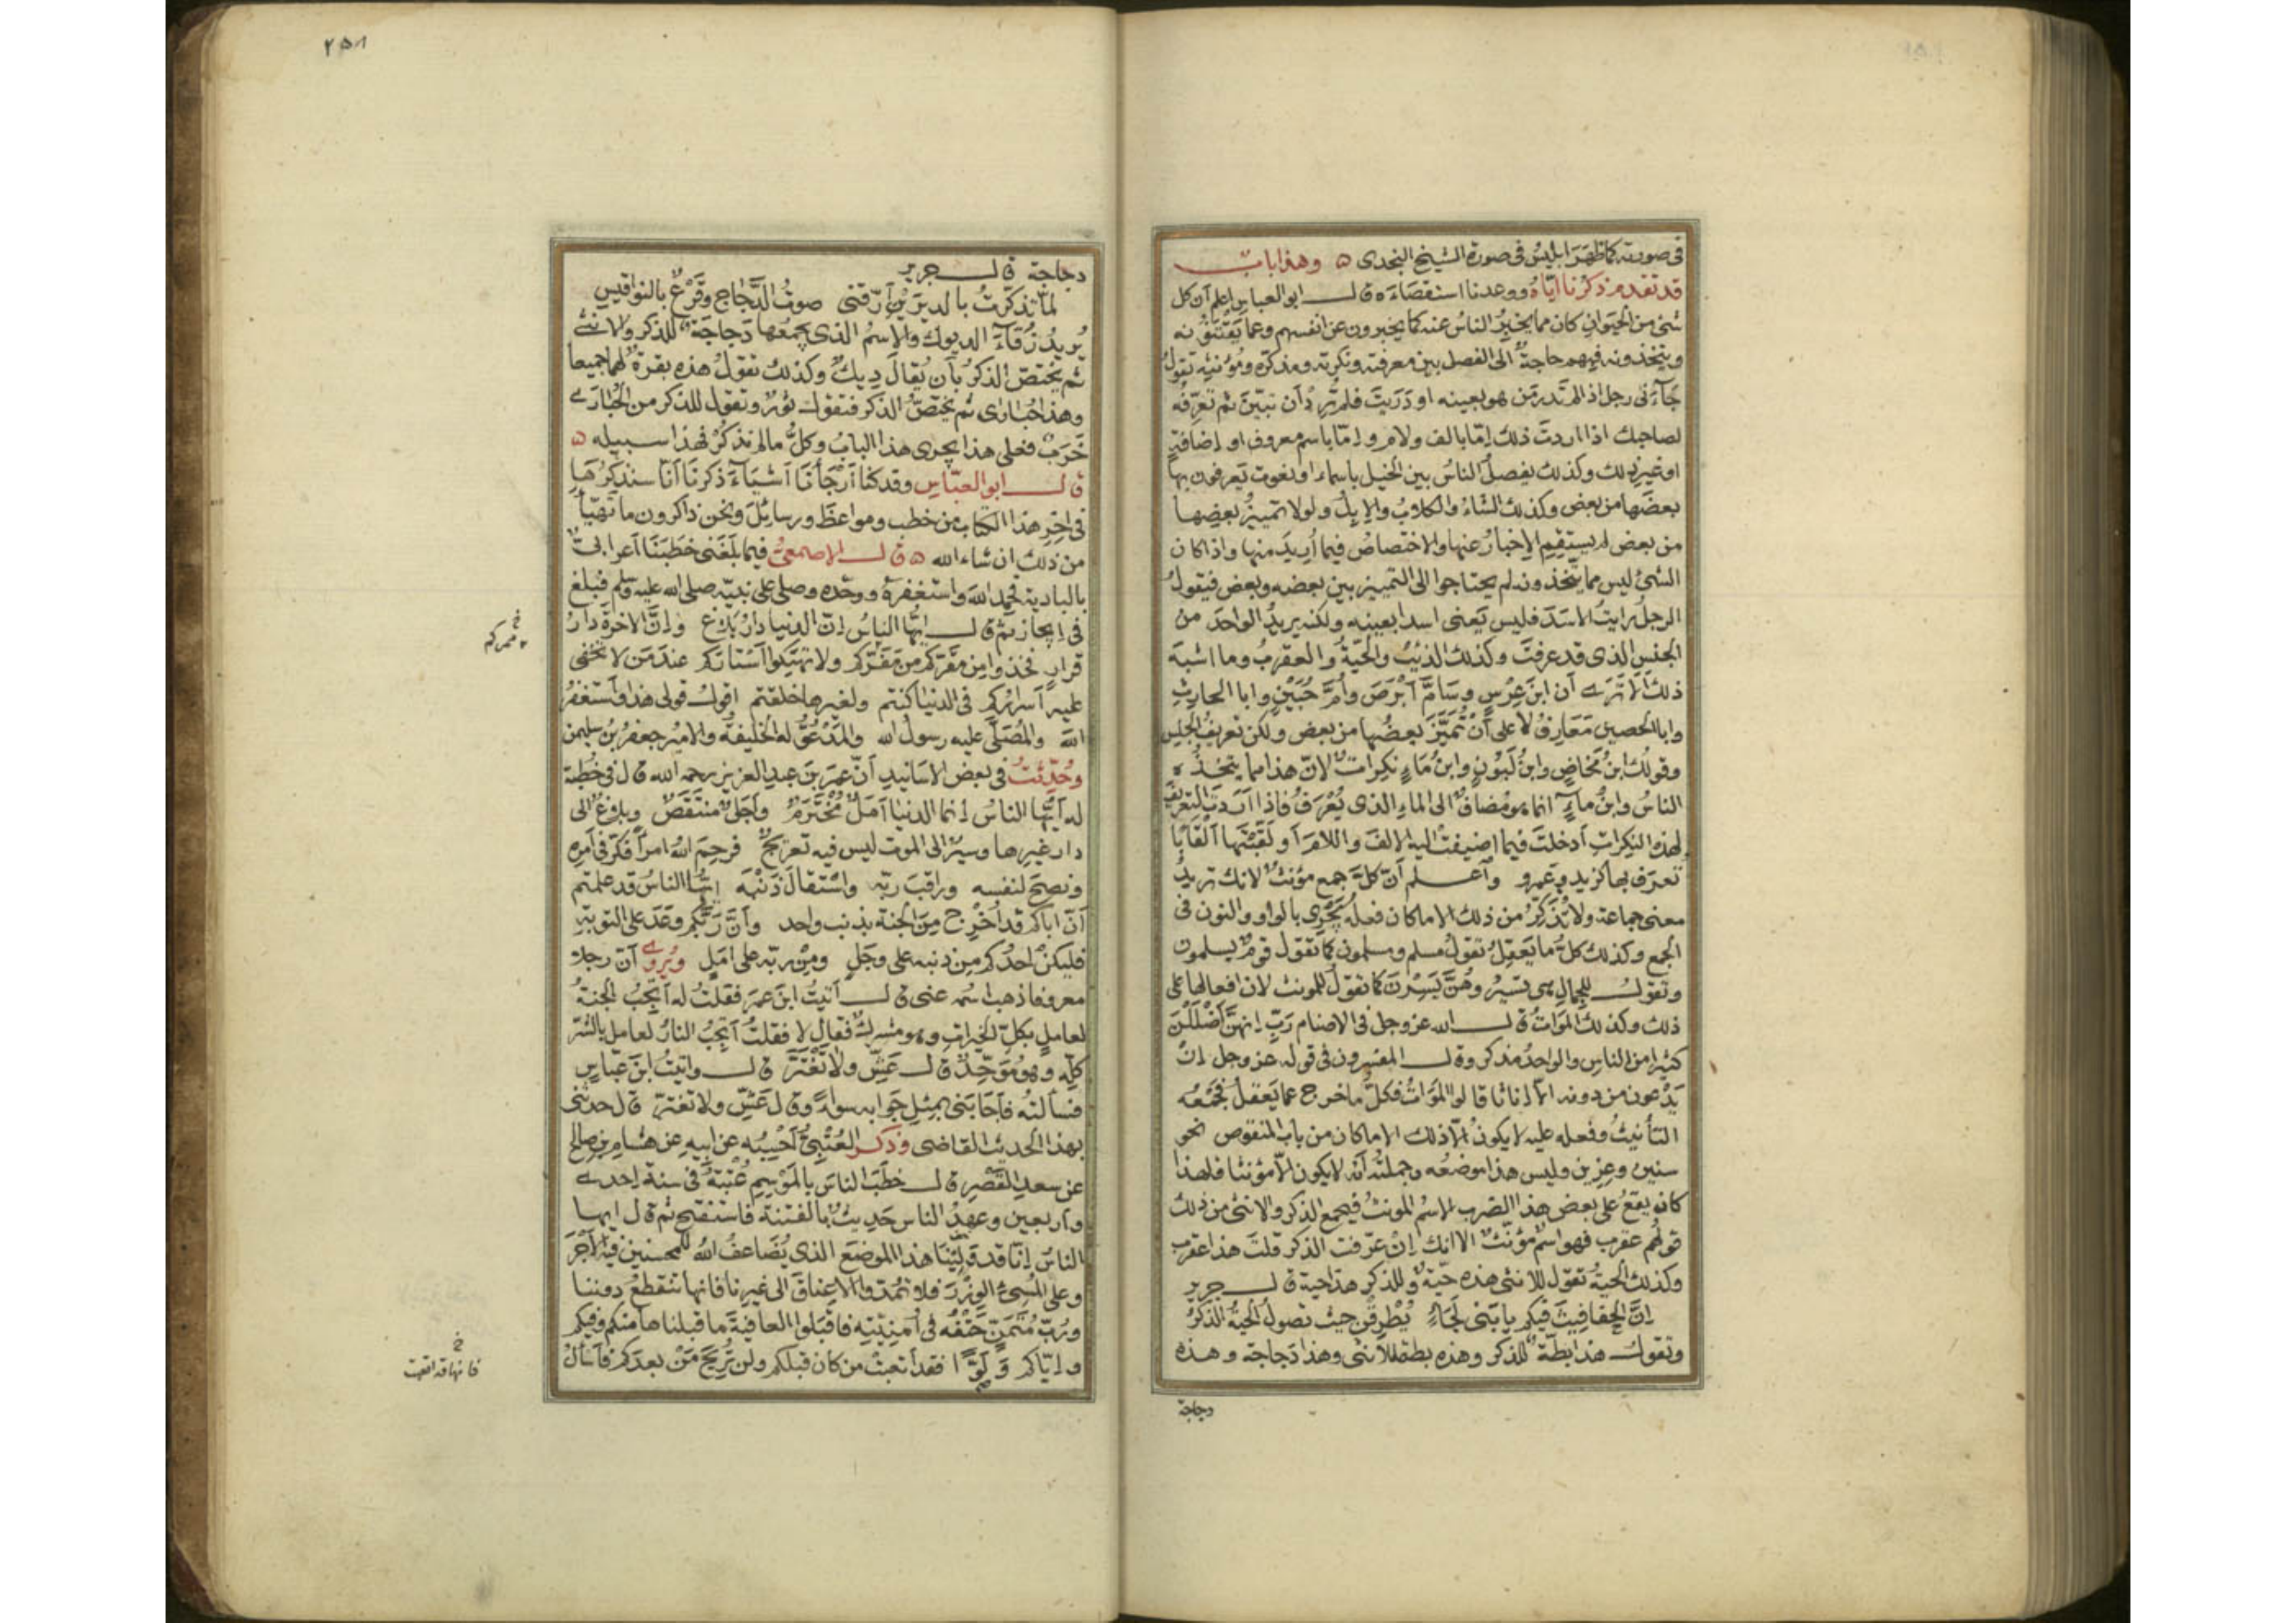 في صورته كما ظهَرَ ابليسُ في صورة الشيخ النجدى ۵ وهذا باب
قد تقدم ذكرنا ايّاهُ ووعدنا استقصَاءَه قال ابو العباس اعلم اَن كل
شئ من الحيَوانِ كان مما يخبِرُ الناسُ عنه كما يخبرون عن انفسهم وعما يَقْتَنُونه
ويتخذونه فبهم حاجةٌ الى الفصل بين معرفته ونكرته ومذكره ومُؤنثِه تقولُ
جَآءَنى رجل اذا لم تَدرِ مَن هو بعينه او دَرَيتَ فلم تُرِدْ اَن تبيّنَ ثم تعرّفُه
لصاحبك اذا اردتَ ذلك اِمّا بالف ولام واِمّا باسم معروف او اِضافةٍ
او غيرِ ذلك وكذلك يفصلُ الناسُ بين الخيل باسماء او نعوت يَعرفون بها
بعضَها من بعض وكذلك الشاءُ والكلابُ والاِبِلُ ولولا تمييزُ بعضِها
من بعض لم يستقِمِ الاِخبارُ عنها والاختصاصُ فيما اُرِيدَ منها واذا كان
الشئ ليس مما يتّخذونه لم يحتاجوا الى التمييز بين بعضه وبعض فيقولُ
الرجلُ رايتُ الاسَدَ فليس يَعنى اسدا بعينه ولكنه يريدُ الواحدَ من
الجنسِ الذى قد عرفتَ وكذلك الذئبُ والحَيّةُ والعقربُ وما اشبه
ذلك اَلا تَرَى اَن ابنَ عِرْسٍ وسَامَّ اَبْرَصَ واُمَّ حُبَيْنٍ وابا الحارِثِ
وابا الحصين مَعَارِفُ لا على اَنْ تُمَيِّزَ بعضُها من بعض ولكن تعريفُ الجنس
وقولك ابنُ مَخَاضٍ وابنُ لَبُوْنٍ وابنُ مَاءٍ نكِراتٌ لانّ هذا مما يتخذُه
الناسُ وابنُ ماءٍ انما هو مُضافٌ الى الماءِ الذى يُعْرَفُ فاذا اَرَدتَ التعريفَ
لهذه النكِراتِ اَدخلتَ فيما اضيفت اليه الالفَ واللامَ اَو لَقَّبْتَها اَلقَابًا
تعرَف بها كزيد وعَمرو واَعلم اَن كلَّ جمع مؤنث لانك تريدُ
معنى جماعة ولا تُذَكِّرُ من ذلك الا ما كان فعلُه يَجْرِى بالواو والنون فى
الجمع وكذلك كلُّ ما يَعقِلُ تقولُ مسلم ومسلمون كما تقول قومٌ يسلمون
وتقولُ للجِمالِ هى تسيرُ وهُنَّ يَسِرْنَ كما تقولُ للمونث لان افعالها على
ذلك وكذلك المَوَاتُ قال الله عز وجل فى الاصنام رَبِّ اِنهنَّ اَضْلَلْنَ
كثيرا من الناسِ والواحدُ مذكر وقال المفسرون فى قوله عز وجل اِنْ
يَدْعون من دونه اِلّا اِناثا قالوا المَوَاتُ فكلُّ ما خرج عما يَعقلُ فجَمْعُه
التأنيثُ وفعله عليه لا يكونُ اِلّا ذلك الا ما كان من باب المنقوص نحو
سنين وعِزين وليس هذا موضعُه وجملتُه اَنه لا يكون اِلّا مؤنثا فلهذا
كان يقعُ على بعض هذا الضرب الاسْمُ المونثُ فيجمع الذكر والانثى من ذلك
قولهُم عقرب فهو اسمٌ مُؤنّثٌ الا انك اِنْ عرّفت الذكر قلتَ هذا عقرب
وكذلك الحَيةُ تقول للانثى هذه حَيّةٌ وللذكر هذا حية قال جرير
اِنَّ الحَفافيثَ فيكم يا بَنى لَجَاءٍ يُطْرِقْن حيث تصولُ الحَيةُ الذكَرُ
وتقول هذا بطّة للذكر وهذه بطة للانثى وهذا دَجاجة وهذه
دجاجة
٢٥٨
دجاجة قال جرير
لمّا تذكّرتُ بالديرَيْنِ اَرّقَنى صوتُ الدَّجَاجِ وقَرْعٌ بالنواقيس
يُرِيدُ زُقَاءَ الديوك والاِسمُ الذى يجمعُها دَجاجَةٌ للذكر والانثى
ثم يُختَصُّ الذكرُ بان يُقال دِيكٌ وكذلك تقولُ هذه بقرةٌ لهما جميعا
وهذا حُبَارى ثم يختصّ الذكر فتقول ثَوْرٌ وتقول للذكر من الحُبَارَى
خَرَبٌ فعلى هذا يجرى هذا البابُ وكلُّ ما لم نذكُرْ فهذا سبيله ۵
قال ابو العبّاسِ وقد كنا اَرْجَأنَا اَشيَاءَ ذكرنَا اَنّا سنذكرُهَا
فى اخِرِ هذا الكتاب من خطب ومواعظَ ورسائِلَ ونحن ذاكرون ما تَهَيّأ
من ذلك ان شاء الله ۵ قال الاصمعىُّ فيما بلَغَنى خطَبَنَا اَعرابىٌّ
بالبادية فحمِد اللهَ واستَغفرهُ ووحّده وصلى على نبيّه صلى الله عليه وسلم فبلغ
فى اِيجاز ثم قال ايُّها النّاسُ اِنّ الدنيا دارُ بَلَاغ واِنّ الاخرةَ دارُ
قرارٍ فخذوا مِن مَقَرِّكم
من مَفَرِّكم ولا تهتِكوا اَستَاركم عندَ مَن لا تخفى
خ لممركم
عليه اَسرَارُكم فى الدنيا كنتم ولغيرها خلقتم اقولُ قولى هذا واَستغفرُ
اللهَ والمُصَلَّى عليه رسولُ الله والمَدْعُوُّ له الخليفةُ والامير جعفرُ بنُ سليمن
وحُدِّثتُ فى بعض الاَسَانيدِ اَنّ عمرَ بنَ عبدِ العزيز رحمه الله قال فى خُطبة
له اَيّها الناسُ اِنما الدنيا اَمَلٌ مُخْتَرَمٌ واَجَلٌ منتَقَصٌ وبلاغٌ الى
دار غيرِها وسيرٌ الى الموت ليس فيه تعريجٌ فرحِمَ اللهُ امرأً فكّر فى اَمرِه
ونصحَ لنفسه وراقبَ ربّه واستقالَ ذَنْبَه ايُّها الناسُ قد علمتم
اَنّ اباكم قد اُخْرِج مِن الجنة بذنب واحد واَنّ رَبَّكم وعَدَ على التوبةِ
فليكنْ احدُكم مِن ذنبه على وجَلٍ ومِنْ ربّه على امَلٍ ويُروى اَن رجلا
معروفا ذهب اسمُه عنى قال اَتيتُ ابنَ عمرَ فقلتُ له اَتجِبُ الجنةُ
لعاملٍ بكلِّ الخيراتِ وهو مشرك فقال لا فقلتُ اَتجِبُ النارُ لعامل بالشرّ
كلّه وهو مُوَحِّدٌ قال عَشِّ ولا تَغْتَرَّ قال واتيتُ ابنَ عبّاسٍ
فسألتُه فاَجَابَنى بمثل جَوَابه سواءً وقال عَشِّ ولا تغتر قال حدثنى
بهذا الحديث القاضى وذكر العُتْبِىُّ اَحْسِبُه عن ابيه عن هشام بن صالح
عن سعدٍ القَصْرِ قال خطَبَ الناسَ بالمَوْسِم عُتْبَةُ فى سنة احدى
واربعين وعهدُ الناس حَدِيثٌ بالفتنة فاستفتح ثم قال ايها
الناسُ اِنّا قد وَلِيْنَا هذا الموضعَ الذى يُضَاعفُ اللهُ للمحسنين فيه الاَجْرَ
وعلى المُسِئِ الوِزْرَ فلا تمدّوا الاَعناقَ الى غيرنا فانها تنقطعُ دوننا
ورُبَّ مُتَمَنٍّ حَتْفُه فى اُمنيّتِه فاقبَلوا العافيةَ ما قبلناها منكم وفيكم
واِيّاكم ولَوًّا فقد اتعبتْ من كان قبلكم ولن تُرِيحَ مَنْ بعدَكم فاَسألُ
خ فانها قد اتعبت